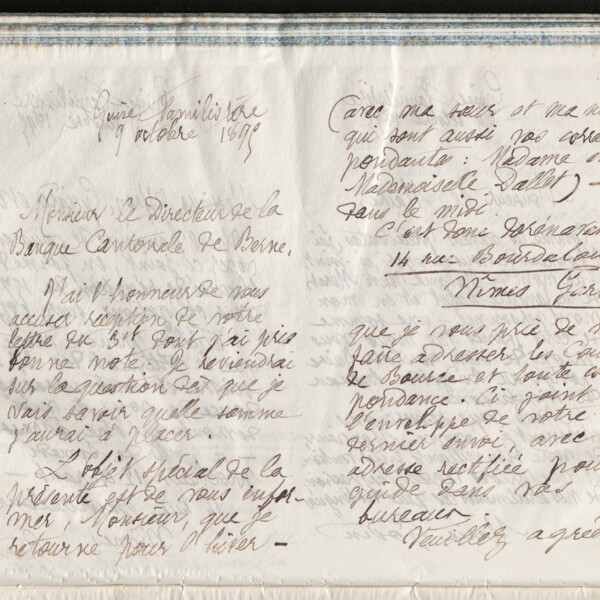 Guise Familistère
9 octobre 1895
Monsieur le Directeur de la
Banque Cantonale de Berne,
J'ai l'honneur de vous
accuser réception de votre
lettre du 3 ct dont j'ai pris
bonne note. Je reviendrai
sur la question dès que je
vais savoir quelle somme
j'aurai à placer.
L'objet spécial de la
présente est de vous infor-
mer, Monsieur, que je
retourne pour l'hiver -
(avec ma sœur et ma n
qui sont aussi vos corres
pondantes : Madame e
Mademoiselle Dallet) -
dans le midi.
C'est donc dorénavan
14 rue Bourdalou
Nîmes Gar
que je vous prie de m
faire adresser les Cou
de Bourse et toute co
pondance. Ci joint
l'enveloppe de votre
dernier envoi, avec
adresse rectifiée pou
guide dans vos
bureaux.
Veuillez agrée